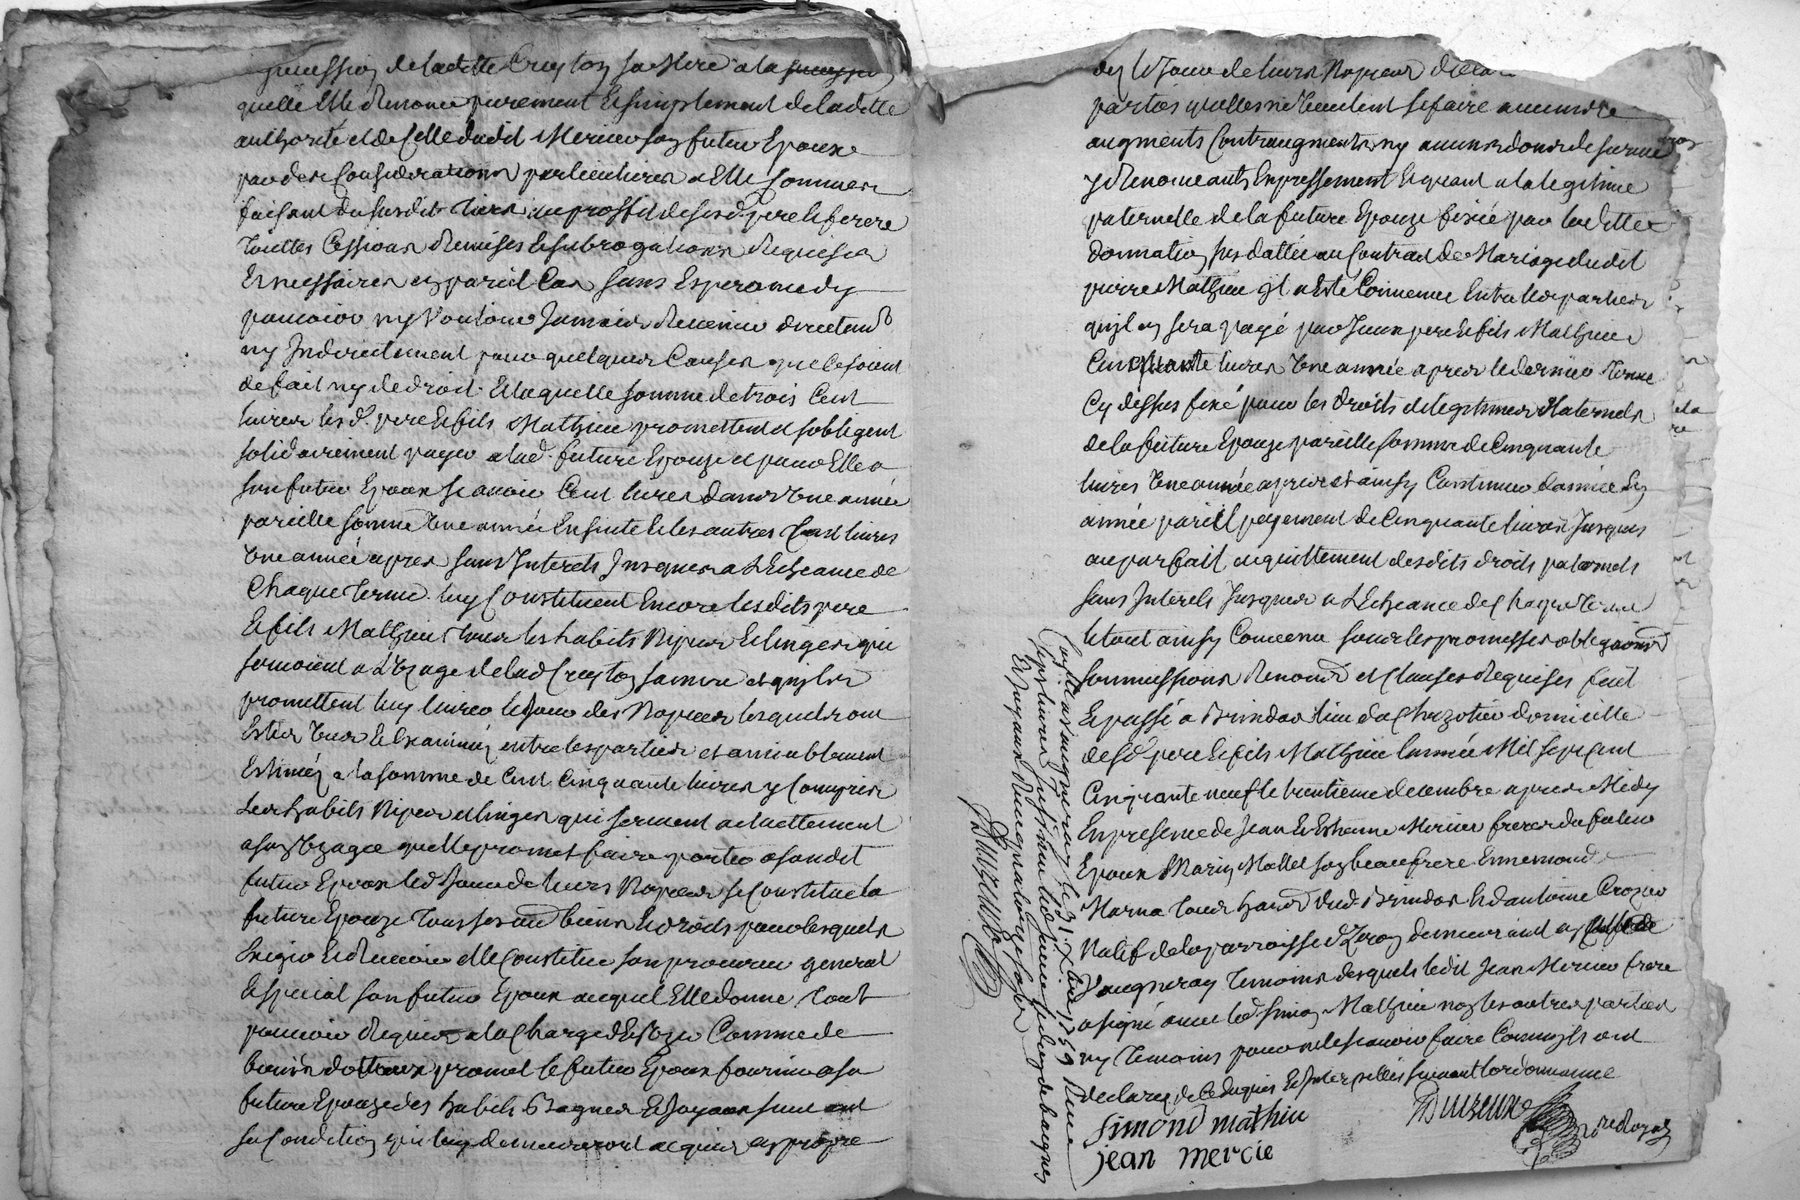 succession de ladette Creyton sa Mere a la succession
quelle Elle Renonce purement Et simplement de ladette
authorité et de Celle dudit Mercier son futur Epoux
par des Considerations particulieres a Elle Connues
faisant du surdit tiers au proffit desesd. pere et frere
touttes Cessions Remises et subrogations Requises
Et necessaires en pareil Cas sans Esperance d'y
pouvoir ny Vouloir Jamais Revenir directem.t
ny Indirectement pour quelques Causes que ce soient
de fait ny de droit. Et laquelle somme de trois Cent
livres lesd. pere et fils Mathieu promettent et sobligent
solidairement payer a lad. future Epouze et pour Elle a
son futur Epoux scavoir Cent livres dans Une année
pareille somme Une année Ensuite et les autres Cent livres
Une année apres sans Interets Jusques a L'Echeance de
Chaque terme. luy Constituent Encore lesdits pere
Et fils Mathieu tous les habits Nipes Et linges qui
servoient a L'Uzage de lad Creyton sa mere et qu'ils
promettent luy livrer le Jour des Nopces lesquels ont
Estes Vues Et Examinés entre les parties et amiablement
Estimés a la somme de Cent Cinquante livres y Compris
Les habits Nipes et linges qui servent actuettement
a son Uzage quelle promet faire porter a sondit
futur Epoux led Jour de leurs Nopces se Constitue la
future Epouze tous ses au.d biens Et droits pour lesquels
Exiger Et Recevoir elle Constitue son procureur general
Et special son futur Epoux auquel Elle donne tout
pouvoir Requis a la Charge d'En Uzer Comme de
biens dottaux promet le futur Epoux fournir a sa
future Epouze des habits Bagues Et Joyaux suivant
sa Condition qui luy demeureront acquis en propre
des le Jour de leurs Nopces declarant
parties quelles ne Veulent se faire aucun autre
augments Contraugments ny aucuns dons de survie
y Renonceants Expressement Et quant a la legitime
paternelle de la future Epouze fixée par ladette
donnation sus dattée au Contrat de Mariage dudit
pierre Mathieu il a Esté Convenu Entre les parties
qu'il en sera payé par Iceux pere et fils Mathieu
Cinquante livres Une année apres le dernier terme
Cy dessus fixé pour les droits de legitimes Maternels
de la future Epouze pareille somme de Cinquante
livres Une année apres et ainsy Continuer d'année En
année pareil payement de Cinquante livres Jusques
au parfait acquittement desdits droits paternels
sans Interets Jusques a L'Echeance de Chaque terme
le tout ainsy Convenu sous les promesses obligaõns
soumissions Renonc.ns et Clauses Requises fait
Et passé a Brindas lieu du Chazotier domicille
desd. pere et fils Mathieu lannée Mil sept Cent
Cinquante neuf le trentieme decembre apres Midy
En presence de Jean Et Estienne Mercier freres du futur
Epoux Marin Mollet son beaufrere Ennemond
Marna tous hab.ts dud. Brindas et d'antoine Crozier
Natif de la parroisse d'Izeron demeurant a
Vaugneray temoins desquels ledit Jean Mercier frere
a signé avec led. Simon Mathieu non les autres parties
ny temoins pour ne le scavoir faire Comm'ils ont
declaré de ce Enquis Et Interpellés suivant l'ordonnance
simond mathiu
jean mercie
Duizeux
No.re Royal
Controllé a Vaugneray le 31. Xbre 1759 Reçu
sept livres
Et Joyaux
Duizeux